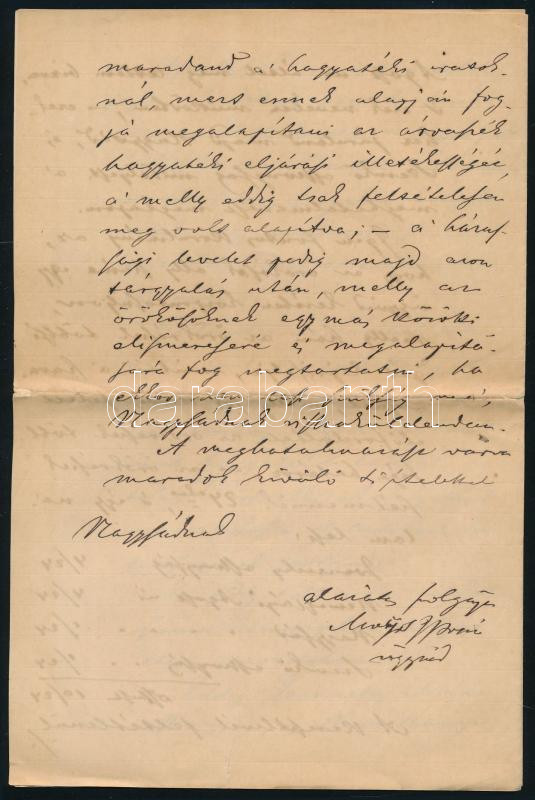 maradand a' hagyatéki iratok-
nál, mert ennek alapján fog-
ja megalapitani az árvaszék
hagyatéki eljárási illetékességét,
a melly eddig csak feltételesen
meg volt alapitva; – a' házas-
sági levelet pedig majd azon
tárgyalás után, melly az
örökösöknek egymás közötti
elismerésére és megalapitá-
sára fog megtartatni, ha
darabanth
nem lesz szükség reá,
Nagysádnak
A meghatalmazást várva
maradok kiváló tisztelettel
Nagysádnak
alázatos szolgája
ügyvéd